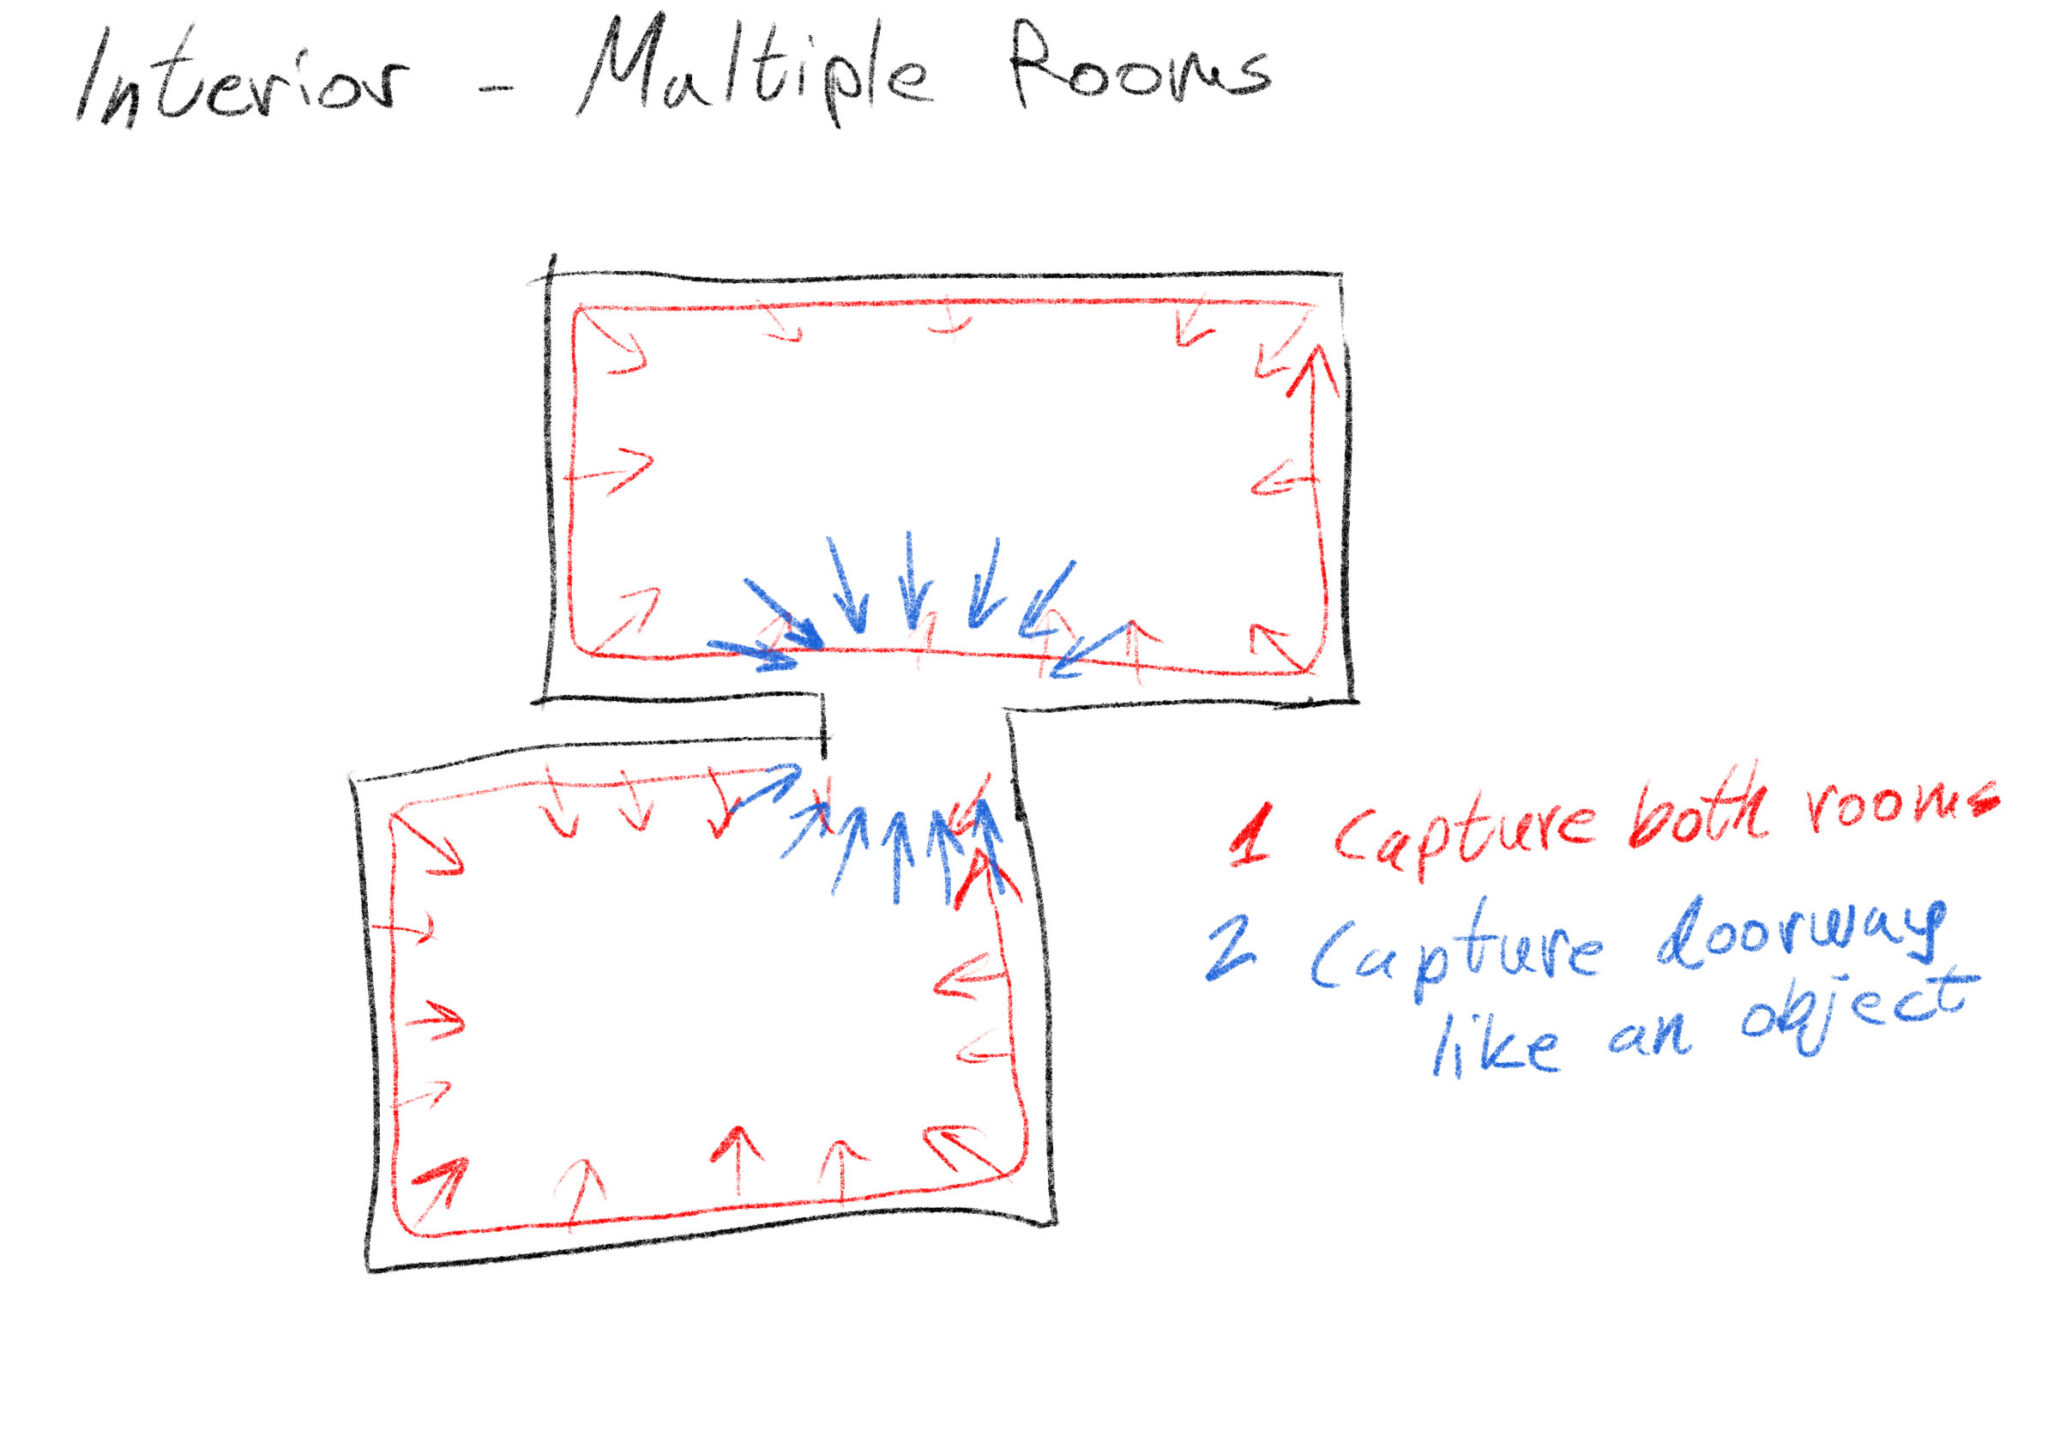 Interior - Multiple Rooms
1 Capture both rooms
2 Capture doorway
like an object